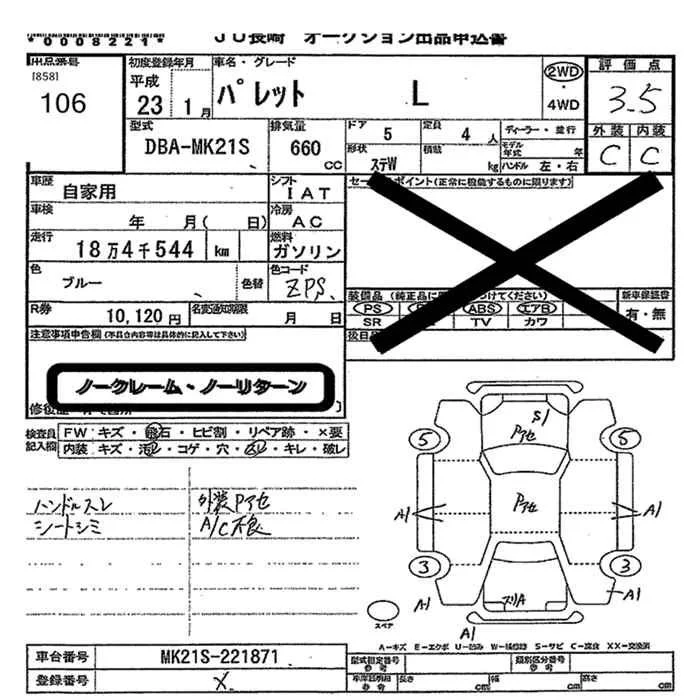 *0008221*
JU長崎 オークション出品申込書
出品番号
[858]
106
初度登録年月
平成
23 1月
車名・グレード
パレット L
2WD
・
4WD
評価点
3.5
外装 内装
C C
型式
DBA-MK21S
排気量
660
CC
ドア 5
定員 4 人
ディーラー・並行
形状
ステW
積載 kg
モデル年式 年
ハンドル 左・右
車歴
自家用
シフト
IAT
車検
年 月( 日)
冷房
AC
走行
18万4千544 km
燃料
ガソリン
色
ブルー
色替
色コード
ZPS
R券
10,120円
名変通知期限
月 日
セールスポイント(正常に機能するものに限ります)
装備品
PS ABS エアB
SR TV カワ
新車保証書
有・無
注意事項申告欄(不具合内容等は具体的に記入して下さい)
ノークレーム・ノーリターン
検査員記入欄
FW キズ・飛石・ヒビ割・リペア跡・×要
内装 キズ・汚レ・コゲ・穴・スレ・キレ・破レ
ハンドルスレ
シートシミ
外装Pアセ
A/C不良
S1
Pアセ
5
5
A1
Pアセ
A1
3
3
A1
スリA
A1
スペア
A1
A-キズ E-エクボ U-凹み W-補修跡 S-サビ C-腐食 XX-交換済
車台番号 MK21S-221871
登録番号 X
型式指定番号
参考
類別区分番号
参考
長さ cm
幅 cm
高さ cm